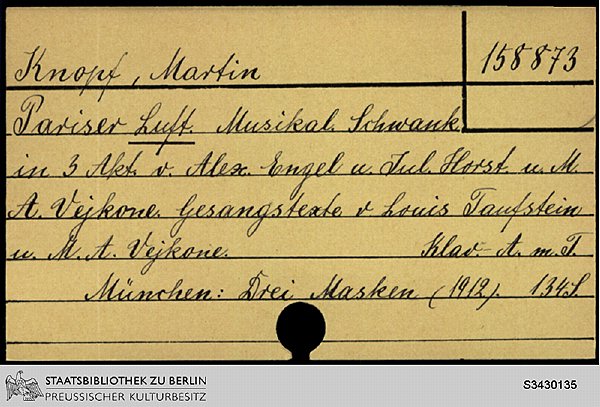 Knopf, Martin
158873
Pariser Luft. Musikal. Schwank
in 3 Akt. v. Alex. Engel u. Jul. Horst u. M.
A. Vejkone. Gesangstexte v Louis Taufstein
u. M. A. Vejkone. Klav.-A. m. T.
München: Drei Masken (1912). 134 S.
STAATSBIBLIOTHEK ZU BERLIN
PREUSSISCHER KULTURBESITZ
S3430135